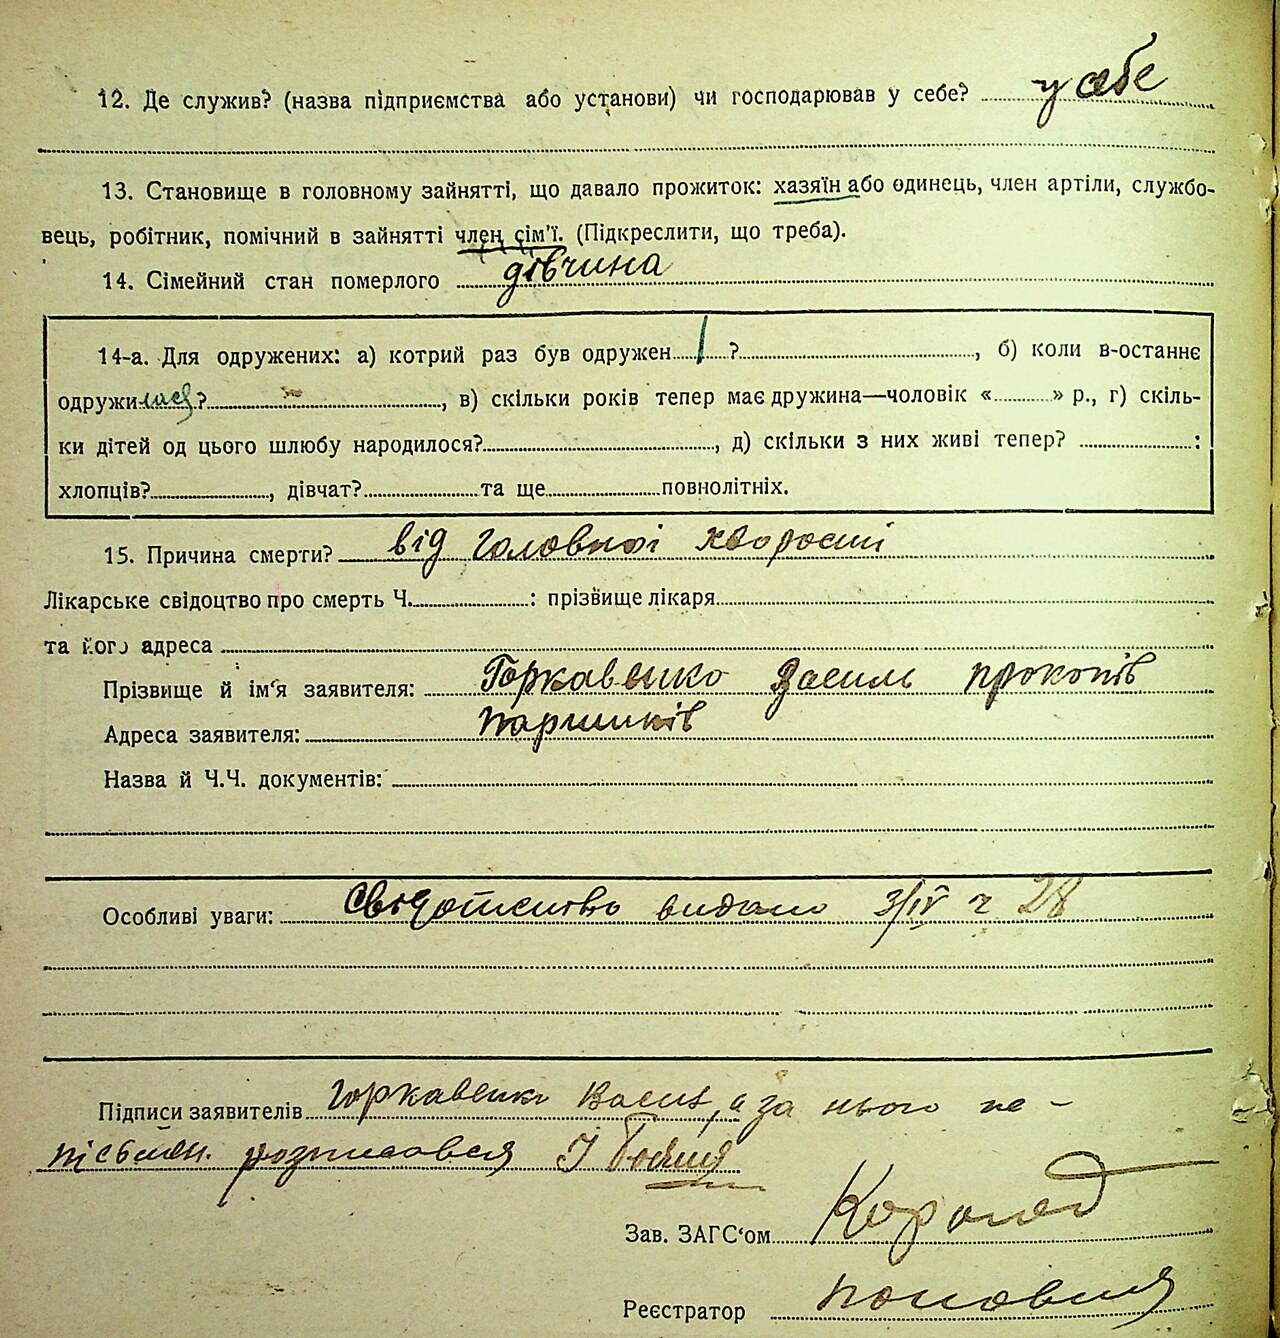 12. Де служив? (назва підприємства або установи) чи господарював у себе? у себе
13. Становище в головному зайнятті, що давало прожиток: хазяїн або одинець, член артіли, службо-
вець, робітник, помічний в зайнятті член сім'ї. (Підкреслити, що треба).
14. Сімейний стан померлого дівчина
14-а. Для одружених: а) котрий раз був одружен ?, б) коли в-останнє
одружилася?, в) скільки років тепер має дружина—чоловік « » р., г) скіль-
ки дітей од цього шлюбу народилося?, д) скільки з них живі тепер? :
хлопців?, дівчат? та ще повнолітніх.
15. Причина смерти? від головної хворости
Лікарське свідоцтво про смерть Ч. : прізвище лікаря
та його адреса
Прізвище й ім'я заявителя: Горкавенко Василь Прокопів
Адреса заявителя: Паришків
Назва й Ч.Ч. документів:
Особливі уваги: Свідотство видано 3/IV ч 28
Підписи заявителів Горкавенко Васил, а за нього не-
письмен. розписався І
Зав. ЗАГС'ом
Реєстратор